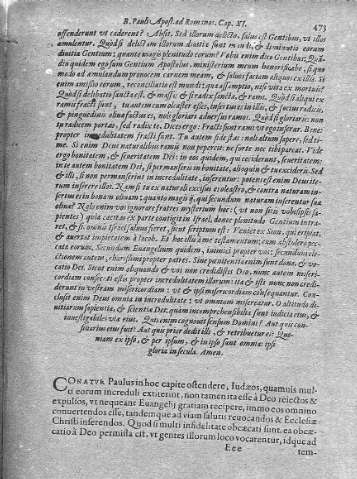 B. Pauli Apost. ad Romanos. Cap. XI. 473
offenderunt ut caderent? Absit. Sed illorum delicto, salus est Gentibus, ut illos
æmulentur. Quòd si delictum illorum divitiæ sunt mundi, & diminutio eorum
divitiæ Gentium: quanto magis plenitudo eorum? Vobis enim dico Gentibus: Quam
diu quidem ego sum Gentium Apostolus, ministerium meum honorificabo, si quo
modo ad æmulandum provocem carnem meam, & salvos faciam aliquos ex illis. Si
enim amissio eorum, reconciliatio est mundi: quæ assumptio, nisi vita ex mortuis?
Quòd si delibatio sancta est, & massa: & si radix sancta, & rami. Quòd si aliqui ex
ramis fracti sunt, tu autem cum oleaster esses, insertus es in illis, & socius radicis,
& pinguedinis olivæ factus es, noli gloriari adversus ramos. Quòd si gloriaris: non
tu radicem portas, sed radix te. Dices ergo: Fracti sunt rami ut ego inserar. Bene:
propter incredulitatem fracti sunt. Tu autem fide stas: noli altum sapere, sed ti-
me. Si enim Deus naturalibus ramis non pepercit: ne forte nec tibi parcat. Vide
ergo bonitatem, & severitatem Dei: in eos quidem, qui ceciderunt, severitatem:
in te autem bonitatem Dei, si permanseris in bonitate, alioquin & tu excideris. Sed
& illi, si non permanserint in incredulitate, inserentur: potens est enim Deus ite-
rum inserere illos. Nam si tu ex naturali excisus es oleastro, & contra naturam in-
sertus es in bonam olivam: quanto magis ij, qui secundum naturam inserentur suæ
olivæ? Nolo enim vos ignorare fratres mysterium hoc: (ut non sitis vobisipsis sa-
pientes) quia cæcitas ex parte contigit in Israel, donec plenitudo Gentium intra-
ret, & sic omnis Israel salvus fieret, sicut scriptum est: Veniet ex Sion, qui eripiat,
& avertat impietatem à Iacob. Et hoc illis à me testamentum: cum abstulero pec-
cata eorum. Secundum Evangelium quidem, inimici propter vos: secundum ele-
ctionem autem, charissimi propter patres. Sine pœnitentia enim sunt dona, & vo-
catio Dei. Sicut enim aliquando & vos non credidistis Deo, nunc autem miseri-
cordiam consecuti estis propter incredulitatem illorum: ita & isti nunc non credi-
derunt in vestram misericordiam: ut & ipsi misericordiam consequantur. Con-
clusit enim Deus omnia in incredulitate: ut omnium misereatur. O altitudo di-
vitiarum sapientiæ, & scientiæ Dei: quàm incomprehensibilia sunt iudicia eius, &
investigabiles viæ eius. Quis enim cognovit sensum Domini? Aut quis con-
siliarius eius fuit? Aut quis prior dedit illi, & retribuetur ei? Quo-
niam ex ipso, & per ipsum, & in ipso sunt omnia: ipsi
gloria in secula. Amen.
CONATVR Paulus in hoc capite ostendere, Iudæos, quamuis mul-
ti eorum increduli extiterint, non tamen ita esse à Deo reiectos &
expulsos, vt nequeant Euangelij gratiam recipere, immo eos omnino
conuertendos esse, tandemque ad viam salutis reuocandos & Ecclesiæ
Christi inserendos. Quòd si multi infidelitate obcæcati sunt, ea obcæ-
catio à Deo permissa est, vt gentes illorum loco vocarentur, idque ad
Eee tem-